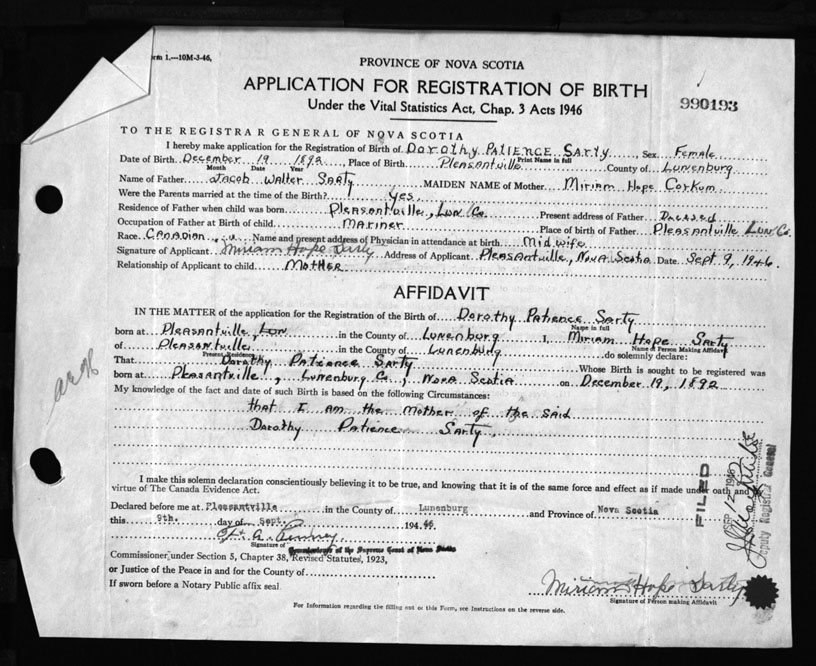 orm 1.—10M-3-46.
PROVINCE OF NOVA SCOTIA
APPLICATION FOR REGISTRATION OF BIRTH
Under the Vital Statistics Act, Chap. 3 Acts 1946
990193
TO THE REGISTRAR GENERAL OF NOVA SCOTIA
I hereby make application for the Registration of Birth of Dorothy PATIENCE SARTY, Sex Female
Print Name in full
Date of Birth December 19 1892, Place of Birth Pleasantville County of Lunenburg
Month Date Year
Name of Father Jacob Walter Sarty MAIDEN NAME of Mother Miriam Hope Corkum
Were the Parents married at the time of the Birth? yes
Residence of Father when child was born Pleasantville, Lun Co. Present address of Father Deceased
Occupation of Father at Birth of child MARINER Place of birth of Father Pleasantville Lun Co.
Race Canadian, Name and present address of Physician in attendance at birth Midwife
Signature of Applicant Miriam Hope Sarty Address of Applicant Pleasantville, Nova Scotia Date Sept 9, 1946.
Relationship of Applicant to child MOTHER
AFFIDAVIT
IN THE MATTER of the application for the Registration of the Birth of Dorothy Patience Sarty
Name in full
born at Pleasantville, Lun in the County of Lunenburg I, Miriam Hope Sarty
Name of Person Making Affidavit
of Pleasantville in the County of Lunenburg do solemnly declare:
Present Residence
That Dorothy Patience Sarty Whose Birth is sought to be registered was
born at Pleasantville, Lunenburg Co., Nova Scotia on December 19, 1892
My knowledge of the fact and date of such Birth is based on the following Circumstances:
that I am the Mother of the said
Dorothy Patience Sarty.
I make this solemn declaration conscientiously believing it to be true, and knowing that it is of the same force and effect as if made under oath and by
virtue of The Canada Evidence Act.
Declared before me at Pleasantville in the County of Lunenburg and Province of Nova Scotia
this 9th. day of Sept. 194 46
Signature of
Commissioner of the Supreme Court of Nova Scotia
Commissioner under Section 5, Chapter 38, Revised Statutes, 1923,
or Justice of the Peace in and for the County of
If sworn before a Notary Public affix seal
Miriam Hope Sarty
Signature of Person making Affidavit
For Information regarding the filling out of this Form, see Instructions on the reverse side.
FILED
SEP 12 1946
Deputy Registrar General